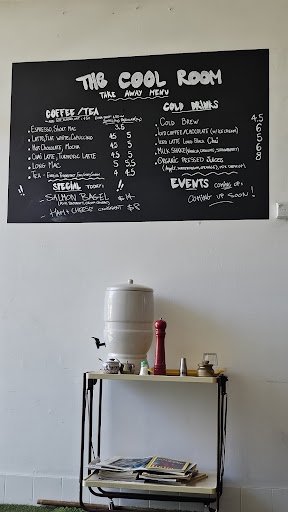 THE COOL ROOM
TAKE AWAY MENU
COFFEE/TEA
ESPRESSO, SHORT MAC 3.5
LATTE, FLAT WHITE, CAPPUCCINO 4.5 5
HOT CHOCOLATE, MOCHA 4.5 5
CHAI LATTE, TURMERIC LATTE 4.5 5
LONG MAC 5 5.5
TEA - 4 4.5
SPECIAL TODAY:
- SALMON BAGEL $14
- HAM + CHEESE CROISSANT $8
COLD DRINKS
COLD BREW 4.5
ICED COFFEE/CHOCOLATE (W/ ICE CREAM) 6
ICED LATTE LONG BLACK CHAI 5
MILK SHAKE 6
ORGANIC PRESSED JUICES 8
EVENTS COMING UP:
COMING UP SOON!